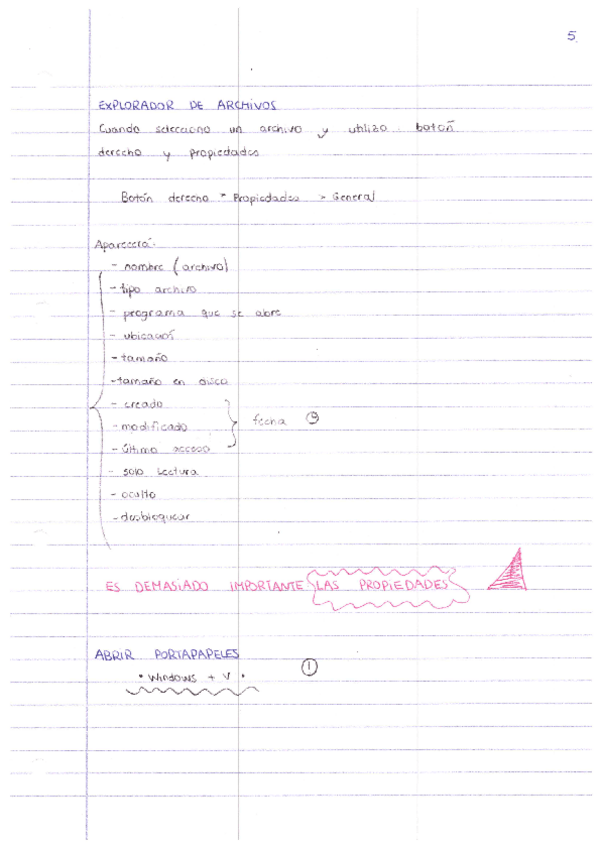 5
EXPLORADOR DE ARCHIVOS
Cuando selecciono un archivo y utilizo botón
derecho y propiedades
Botón derecho > Propiedades > General
Aparecerá:
- nombre (archivo)
- tipo archivo
- programa que se abre
- ubicación
- tamaño
- tamaño en disco
- creado
- modificado
fecha
- último acceso
- solo lectura
- oculto
- desbloquear
ES DEMASIADO IMPORTANTE LAS PROPIEDADES
ABRIR PORTAPAPELES
1
• Windows + V •